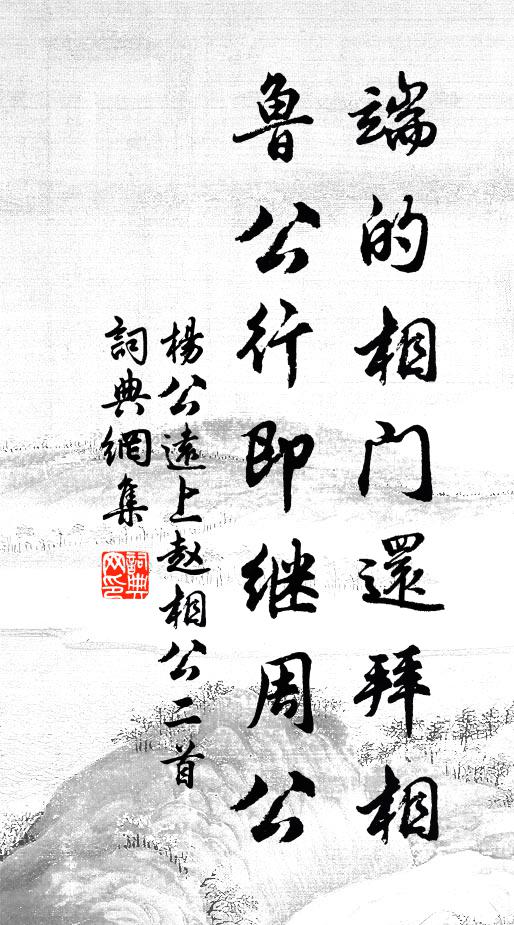 端的相門還拜相
魯公行即继周公
楊公遠上赵相公二首
詞典網集
詞典
网印